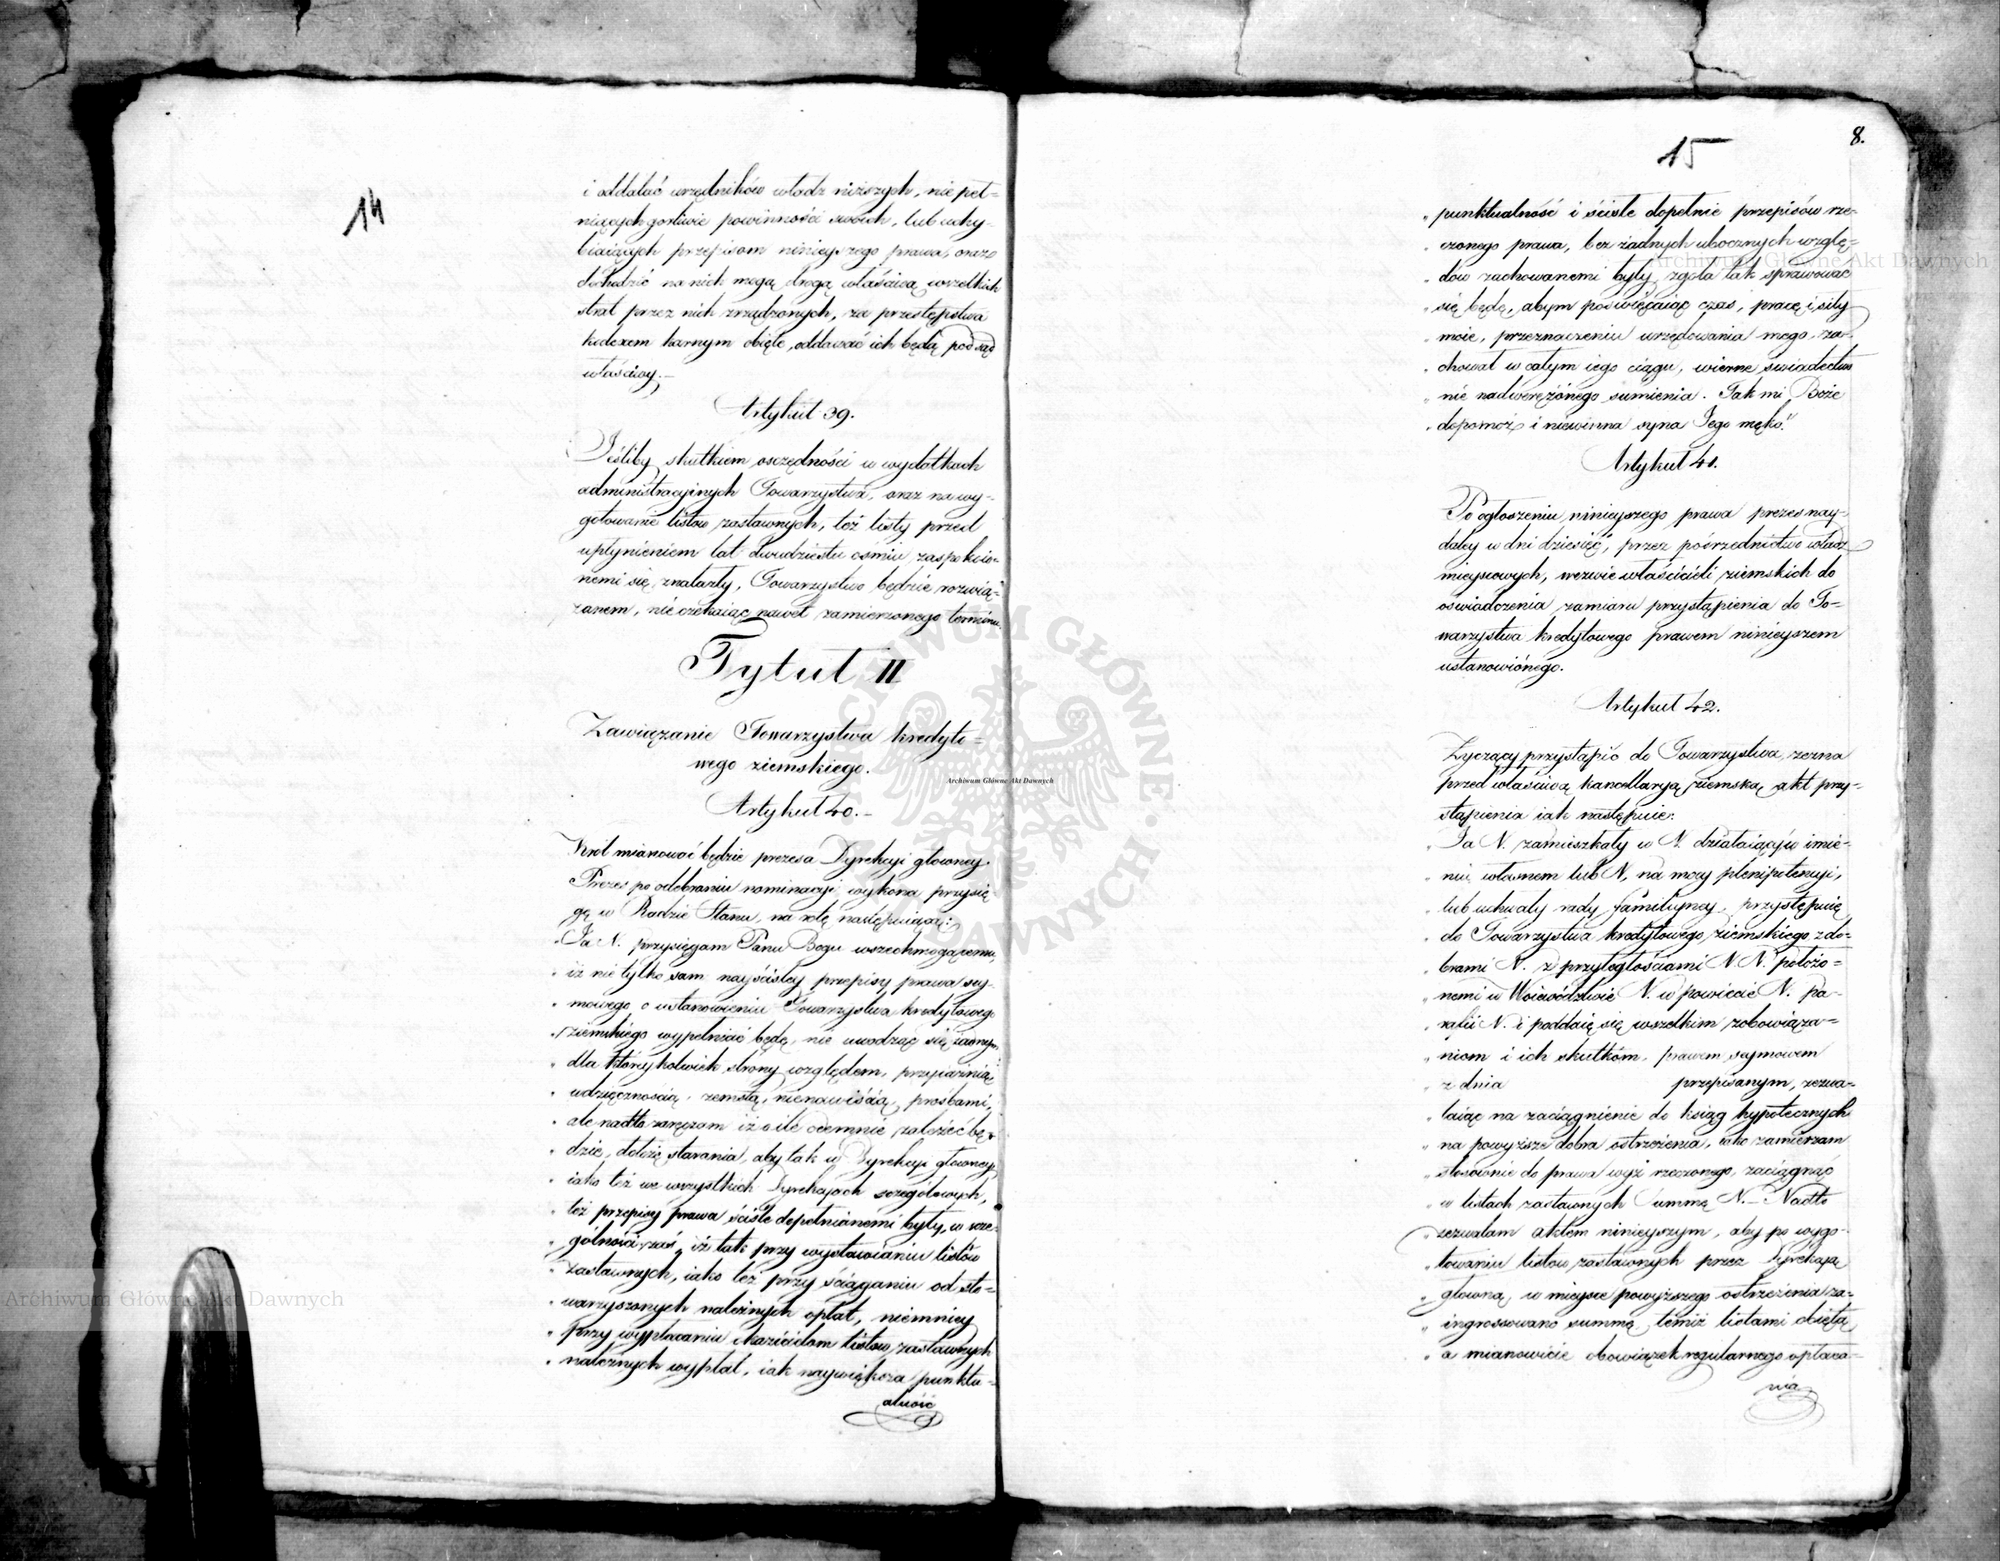 14
i oddalać urzędników władz niższych, nie peł=
niących gorliwie powinności swoich, lub uchy-
biaiących przepisom ninieyszego prawa, oraz
dochodzić na nich mogą drogą właściwą wszelkich
strat przez nich zrządzonych, za przestępstwa
kodexem karnym obięte, oddawać ich będą pod sąd
właściwy.—
Artykuł 39.
Jeśliby skutkiem osczędności w wydatkach
administracyjnych Towarzystwa, oraz na wy-
gotowanie listów zastawnych, też listy przed
upłynieniem lat dwudziestu ośmiu, zaspokoio-
nemi się znalazły, Towarzystwo będzie rozwią-
zanem, nie czekaiąc nawet zamierzonego terminu.
Tytuł II
Zawiązanie Towarzystwa kredyto=
wego ziemskiego.
Artykuł 40.—
Król mianować będzie prezesa Dyrekcyi głowney.
Prezes po odebraniu nominacyi wykona przysię-
gę w Radzie Stanu, na rotę następuiącą:
„Ja N. przysięgam Panu Bogu wszechmogącemu,
„ iż nie tylko sam nayściśley przepisy prawa sey-
„ mowego o ustanowieniu Towarzystwa kredytowego
„ ziemskiego wypełniać będę, nie uwodząc się żadnym
„ dla któreykolwiek strony względem, przyiaźnią,
„ wdzięcznością, zemstą, nienawiścią, prośbami,
„ ale nadto zaręczam iż o ile odemnie zależeć bę-
„ dzie, dołożę starania, aby tak w Dyrekcyi głowney,
„ iako też we wszystkich Dyrekcyach sczególowych,
„ też przepisy prawa ściśle dopełnianemi były, w scze-
„ gólności zaś, iż tak przy wystawianiu listów
„ zastawnych, iako też przy ściąganiu od sto-
„ warzyszonych należnych opłat, niemniey
„ przy wypłacaniu okazicielom listów zastawnych
„ należnych wypłat, iak naywiększa punktu-
alność
8.
15
„ punktualność i ściśle dopełnie przepisów rze-
„ czonego prawa, bez żadnych ubocznych wzglę=
„ dów zachowanemi były, zgoła tak sprawować
„ się będę, abym poświęcaiąc czas, pracę i siły
„ moie, przeznaczeniu urzędowania mego, za-
„ chował w całym iego ciągu, wierne świadectwo
„ nie nadwerężonego sumienia. Tak mi Boże
„ dopomóż i niewinna syna Jego męko."
Artykuł 41.
Po ogłoszeniu ninieyszego prawa prezes nay-
daley w dni dziesięć, przez pośrednictwo władz
mieyscowych, wezwie właścicieli ziemskich do
oświadczenia zamiaru przystąpienia do To-
warzystwa kredytowego prawem ninieyszem
ustanowionego.
Artykuł 42.
Życzący przystąpić do Towarzystwa, zezna
przed właściwą kancellaryą ziemską akt przy-
stąpienia iak następuie:
„ Ja N. zamieszkały w N. działaiący w imie-
„ niu własnem lub N, na mocy plenipotencyi,
„ lub uchwały rady familiyney, przystępuię
„ do Towarzystwa kredytowego ziemskiego z do-
„ brami N. z przyległościami N. N. położo=
„ nemi w Woiewództwie N. w powiecie N. pa-
„ rafii N. i poddaię się wszelkim zobowiąza=
„ niom i ich skutkom, prawem seymowem
„ z dnia przepisanym, zezwa-
„ laiąc na zaciągnienie do ksiąg hypotecznych
„ na powyższe dobra ostrzeżenia, iako zamierzam
„ stosownie do prawa wyż rzeczonego, zaciągnąć
„ w listach zastawnych Summę N.— Nadto
„ zezwalam aktem ninieyszym, aby po wygo-
„ towaniu listów zastawnych przez Dyrekcyą
„ głowną, w mieysce powyższego ostrzeżenia za-
„ ingrossowano summę, temiż listami obiętą,
„ a mianowicie obowiązek regularnego opłaca-
nia